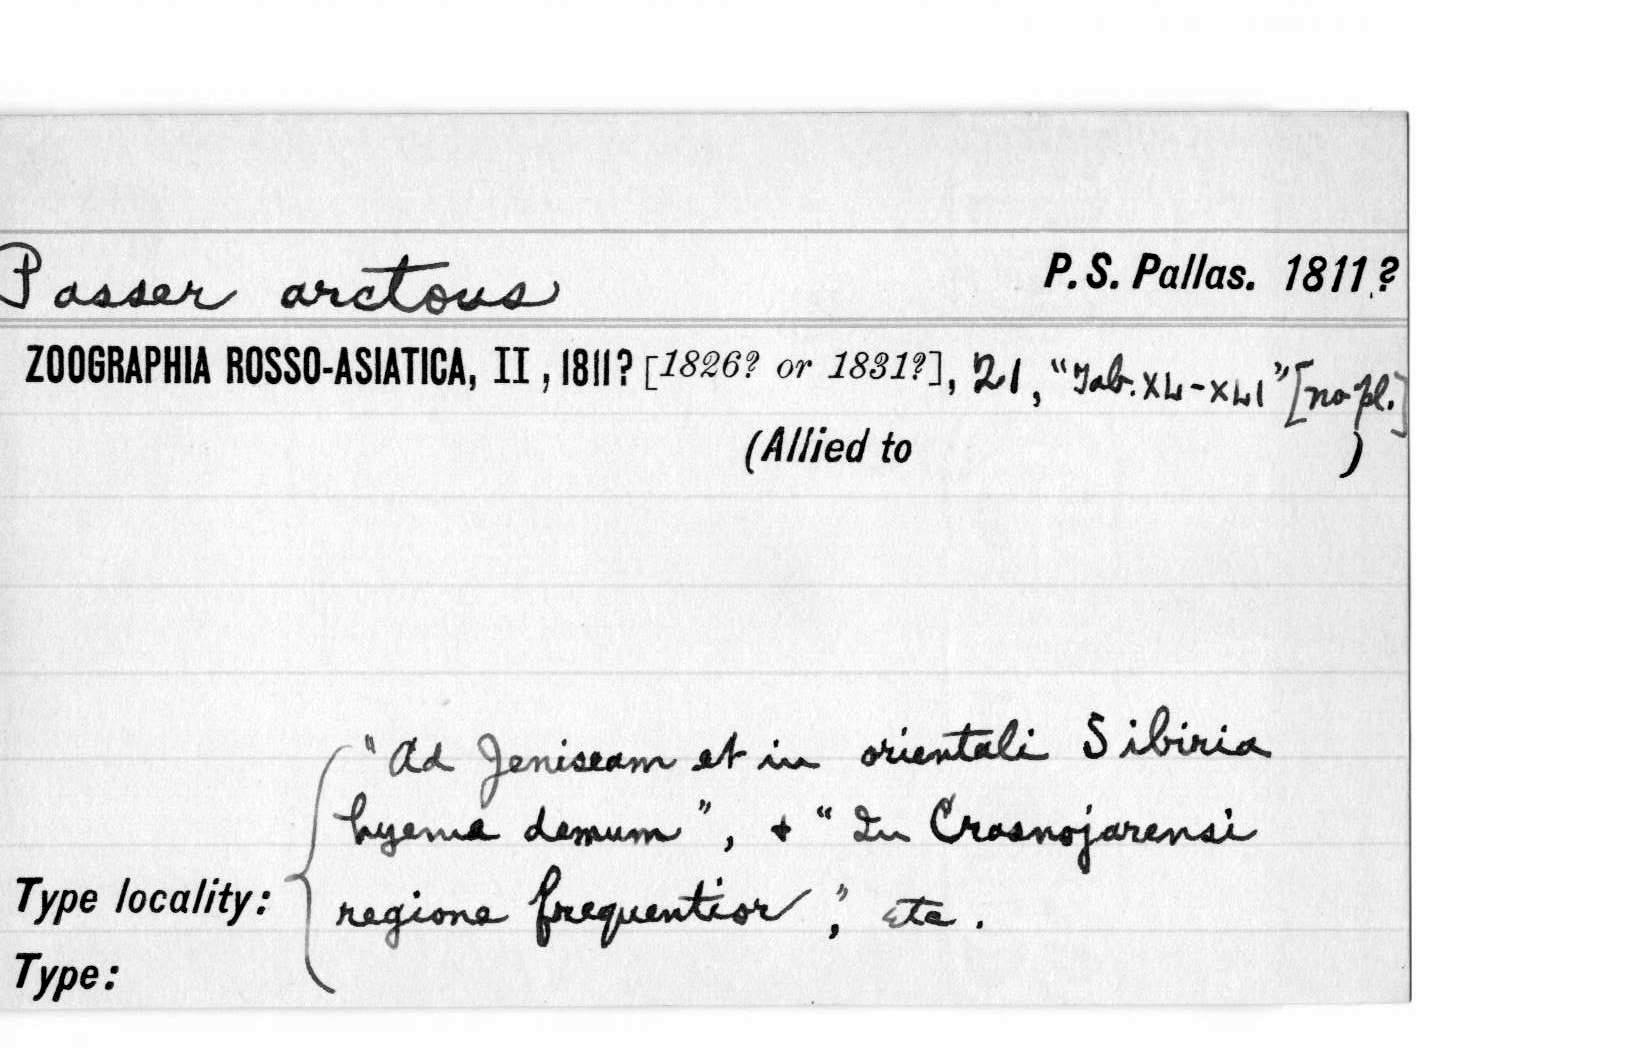 Passer arctous P. S. Pallas. 1811?
ZOOGRAPHIA ROSSO-ASIATICA, II, 1811? [1826? or 1831?], 21, "Tab. XL-XLI" [no pl.]
(Allied to )
"Ad Jeniseam et in orientali Sibiria
hyeme demum", + "In Crasnojarensi
Type locality: regione frequentior", etc.
Type: